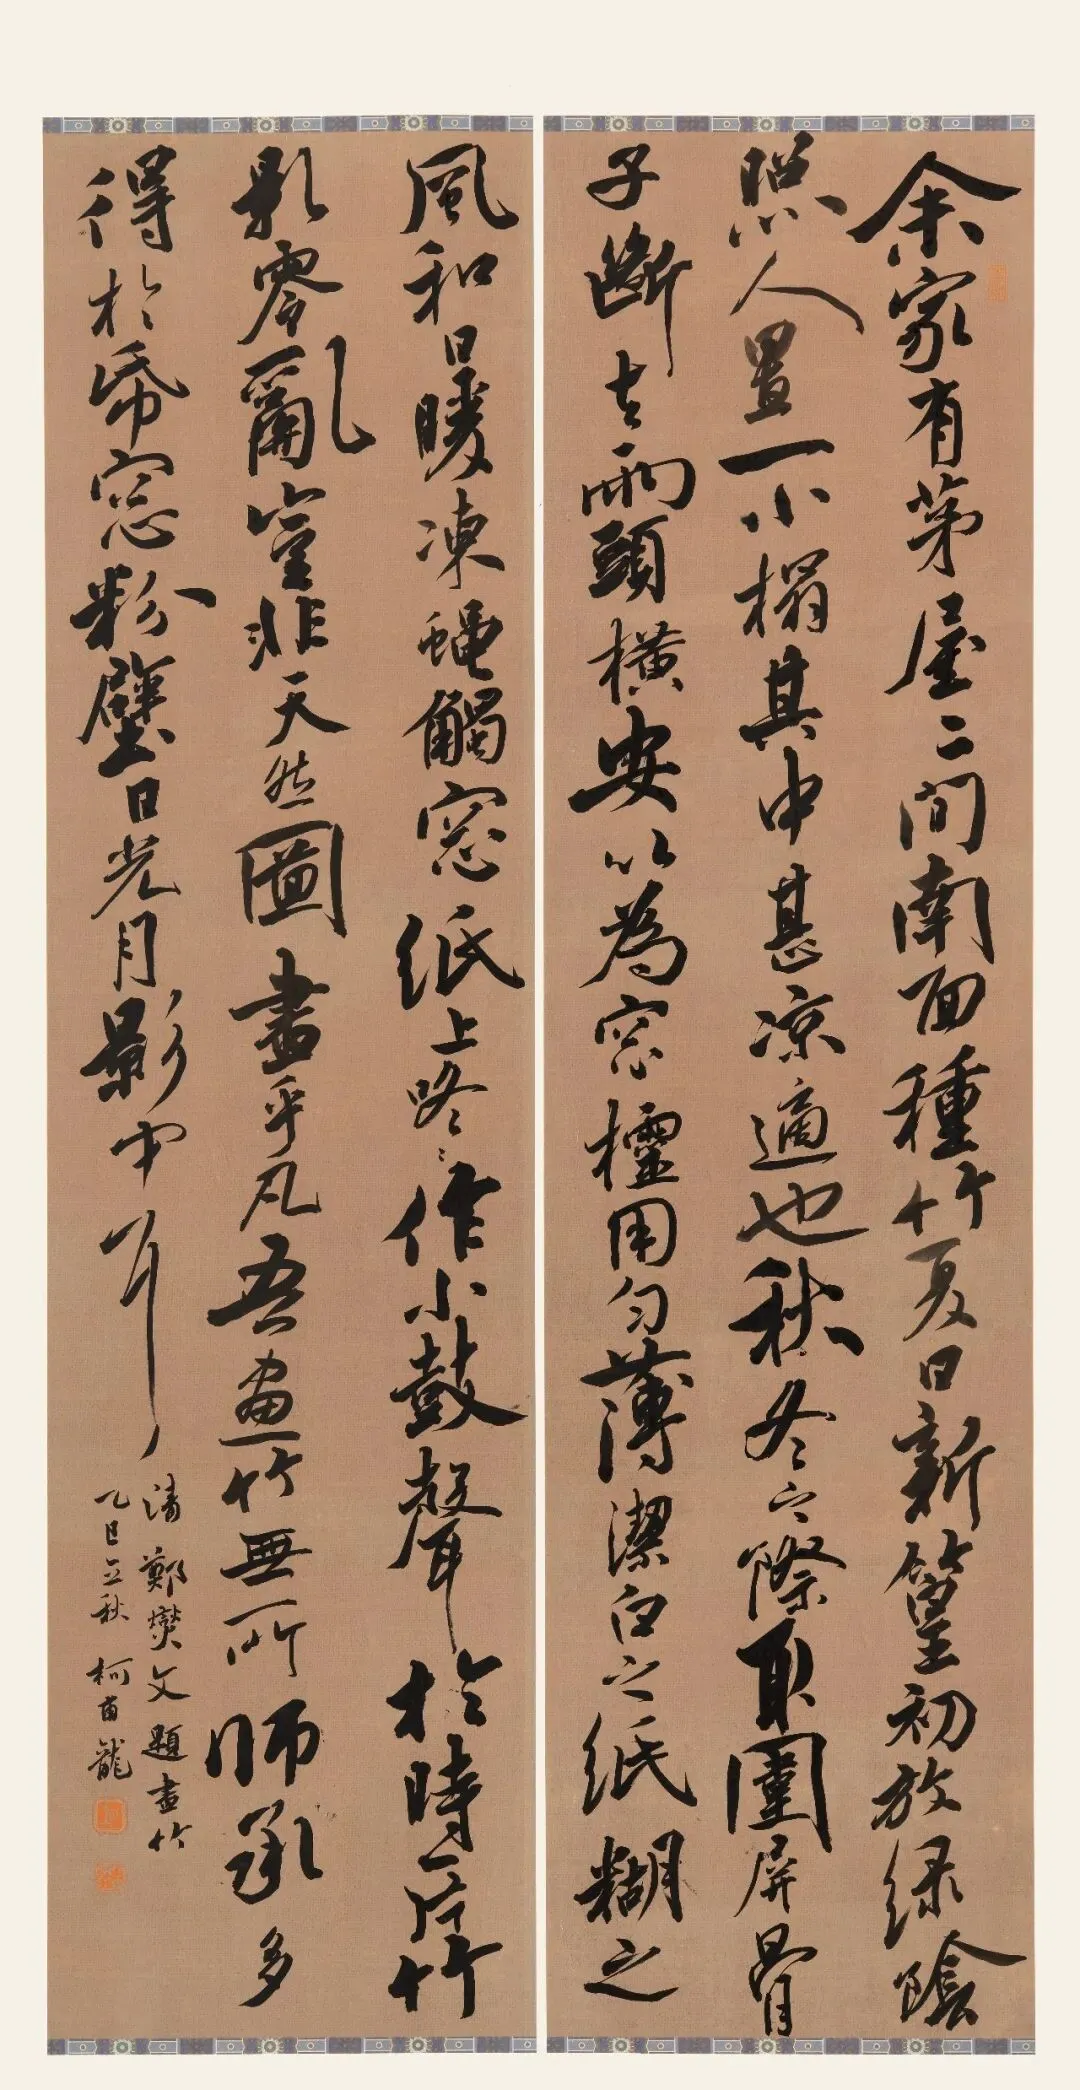 余家有茅屋二間南面種竹夏日新篁初放绿陰
照人置一小榻其中甚凉適也秋冬之際取圍屏骨
子斷去兩頭橫安以為窓欞用匀薄潔白之纸糊之
風和日暖凍蠅觸窓纸上咚咚作小鼓聲於時一片竹
影零亂豈非天然圖畫乎凡吾畫竹無所师承多
得於紙窓粉壁日光月影中耳
清鄭燮文題畫竹
乙巳立秋 柯
龍